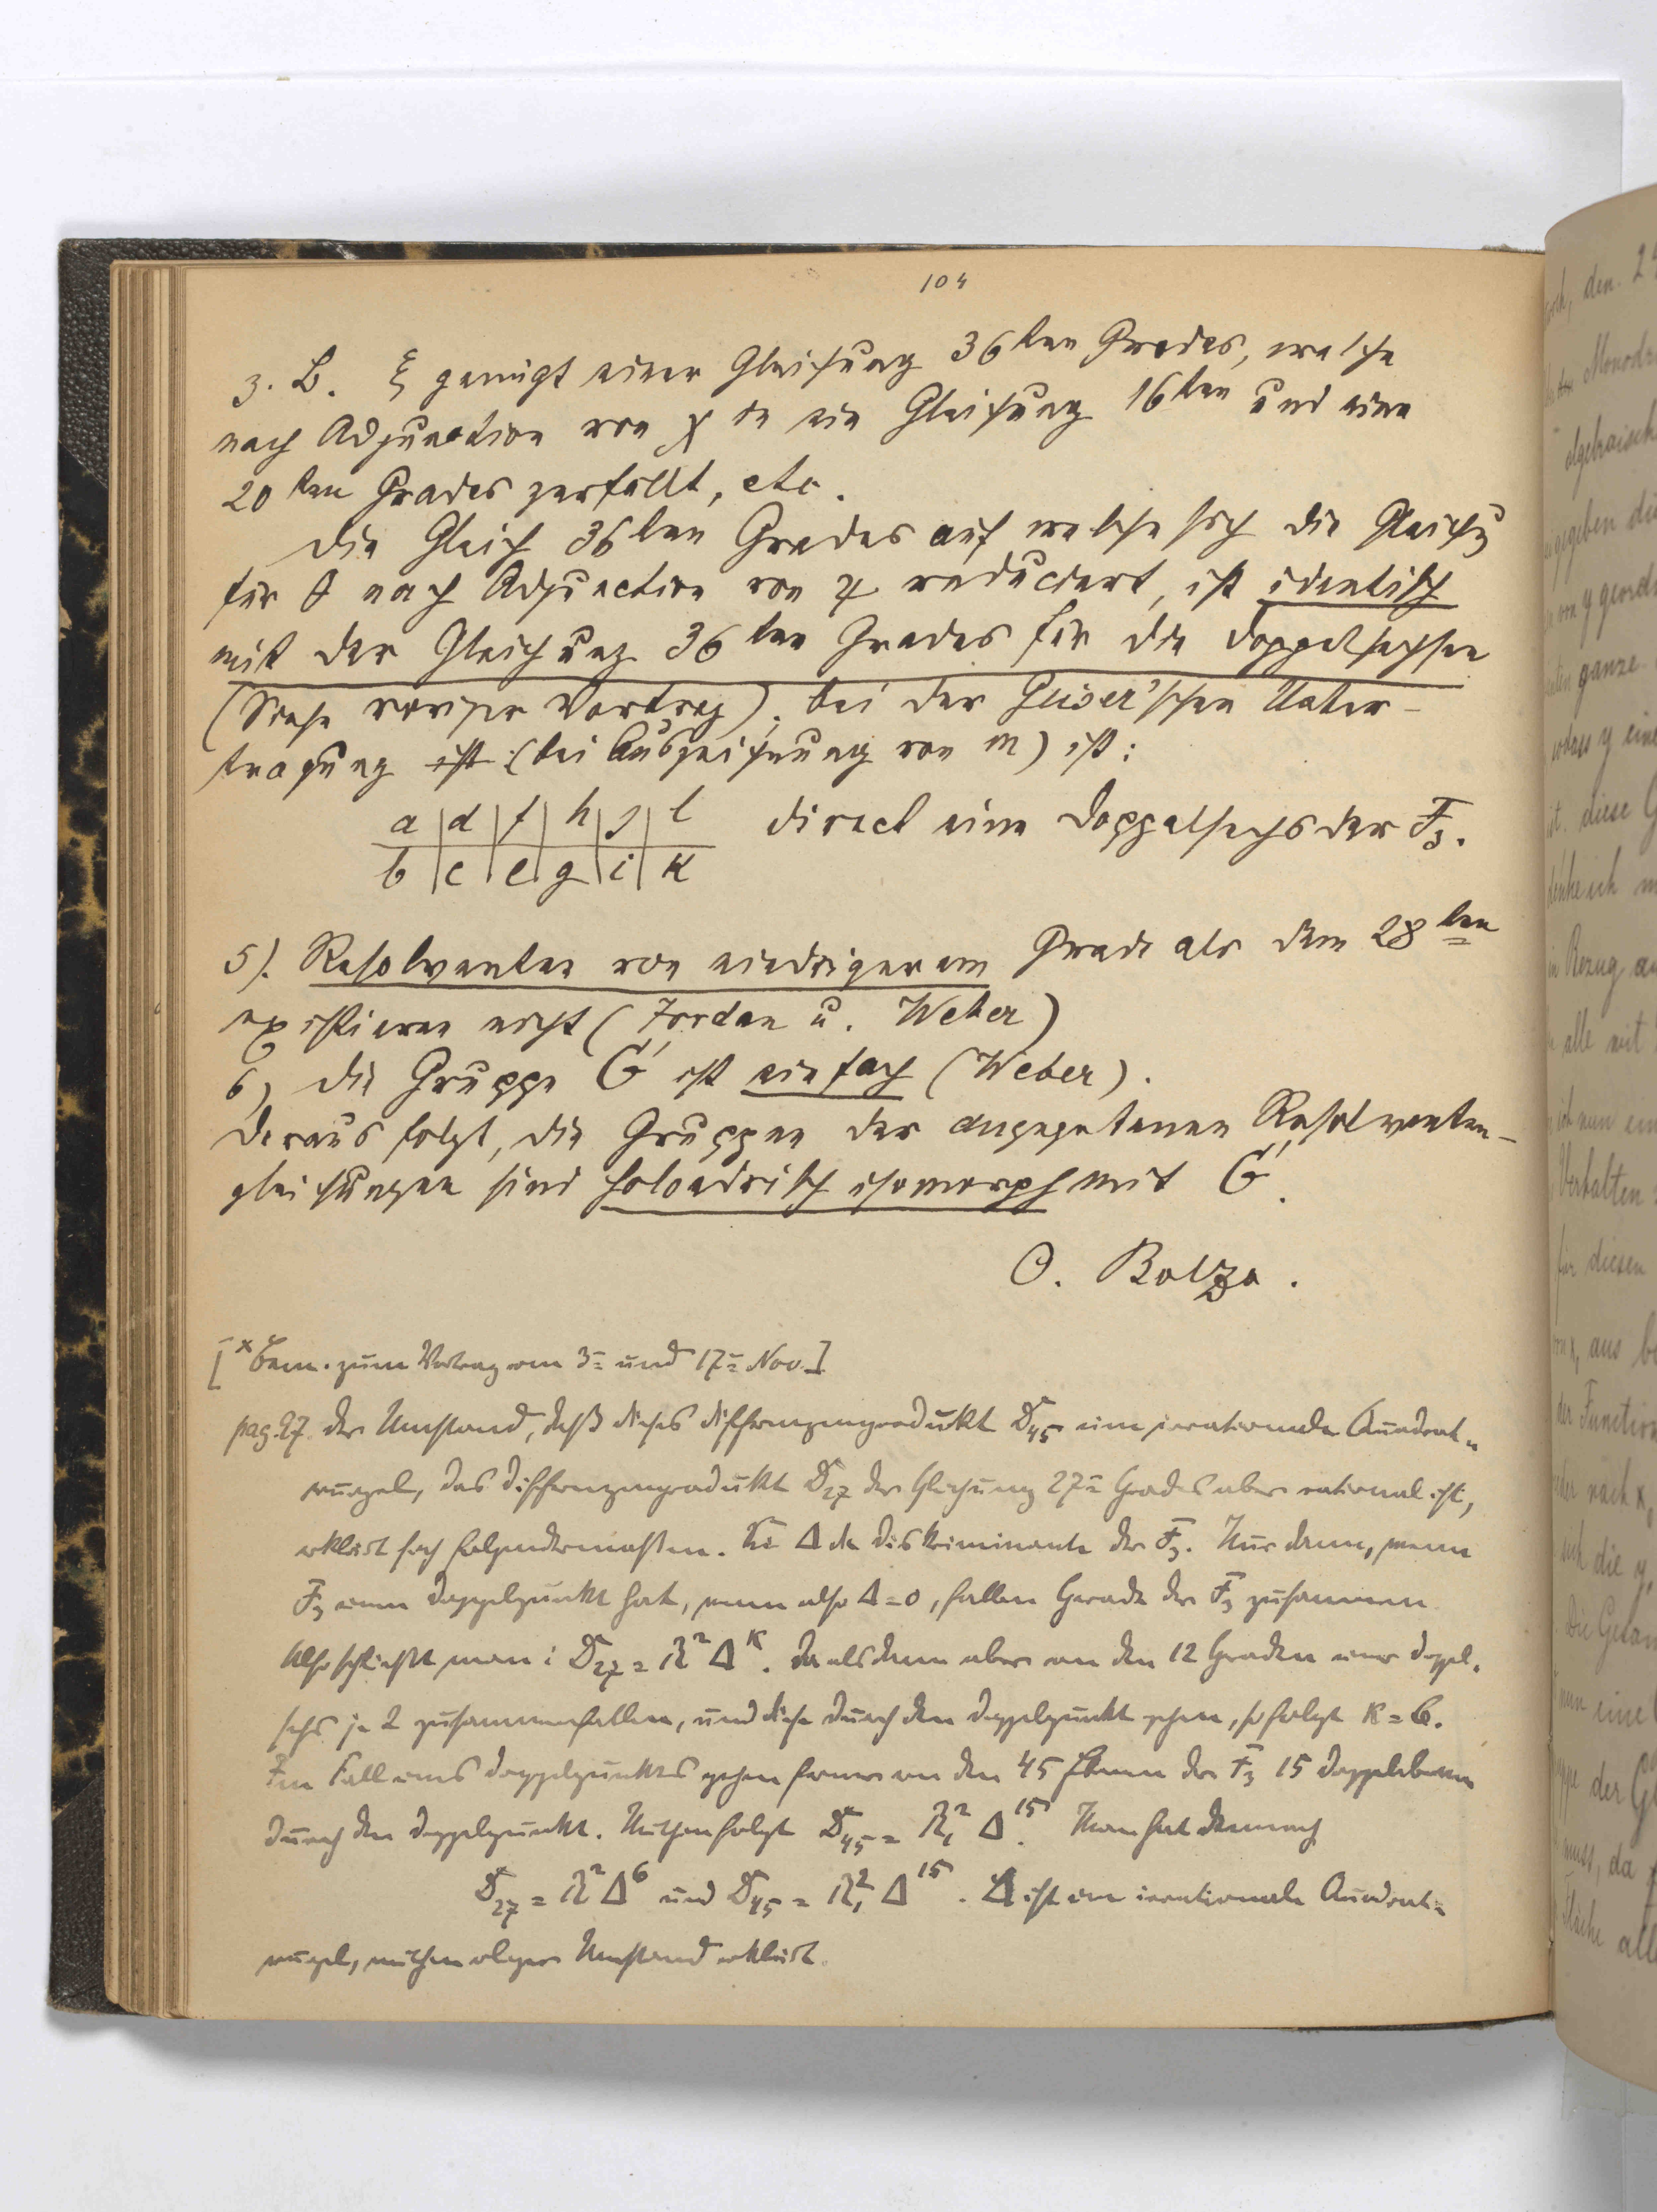 104
z. B. ξ genügt einer Gleichung 36ten Grades, welche
nach Adjunction von χ in eine Gleichung 16ten und eine
20ten Grades zerfällt, etc.
Die Gleich 36ten Grades auf welche sich die Gleichg
für θ nach Adjunction von χ reduciert, ist identisch
mit der Gleichung 36ten Grades für die Doppelsechsen
(Siehe voriger Vortrag); bei der Geiser'schen Ueber-
tragung ist (bei Auszeichnung von m) ist:
a | d | f | h | j | l direct eine Doppelsechs der F₃.
b | c | e | g | i | k
5). Resolventen von niedrigerem Grade als dem 28ten
existieren nicht (Jordan u. Weber)
6) Die Gruppe G' ist einfach (Weber).
Daraus folgt, die Gruppen der angegebenen Resolventen-
gleichungen sind holoedrisch isomorph mit G'.
O. Bolza.
[x Bem. zum Vortrag vom 3= und 17= Nov.]
pag. 27. Der Umstand, daß dieses Differenzenprodukt D₄₅ eine irrationale Quadrat-
wurzel, das Differenzenprodukt D₂₇ der Gleichung 27= Grades aber rational ist,
erklärt sich folgendermaßen. Sei Δ die Diskriminante der F₃. Nur dann, wenn
F₃ einen Doppelpunkt hat, wenn also Δ=0, fallen Gerade der F₃ zusammen
Also schließt man: D₂₇ = R² Δᴷ. Da alsdann aber von den 12 Geraden einer Doppel-
sechs je 2 zusammenfallen, und diese durch den Doppelpunkt gehen, so folgt K = 6.
Im Fall eines Doppelpunktes gehen ferner von den 45 Ebenen der F₃ 15 Doppelebenen
durch den Doppelpunkt. Mithin folgt D₄₅ = R₁² Δ¹⁵. Man hat demnach
D₂₇ = R² Δ⁶ und D₄₅ = R₁² Δ¹⁵. Δ ist eine irrationale Quadrat-
wurzel, mithin obiger Umstand erklärt.